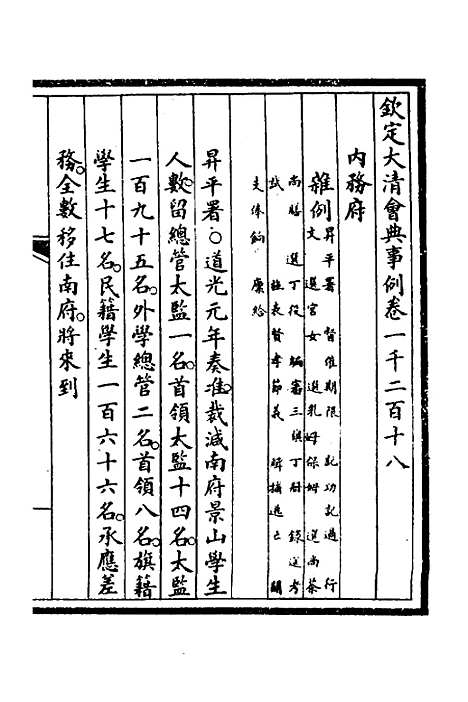 欽定大清會典事例卷一千二百十八
內務府
雜例昇平署 督催期限 記功記過 行
文 選宮女 選乳母保姆 選尚茶
尚膳 選丁役 編審三旗丁冊 錄選考
試 旌表賢孝節義 緝捕逃亡 關
支俸餉 廩給
昇平署〇道光元年奏准裁減南府景山學生
人數留總管太監一名首領太監十四名太監
一百九十五名外學總管二名首領八名旗籍
學生十七名民籍學生一百六十六名承應差
務全數移住南府將來到